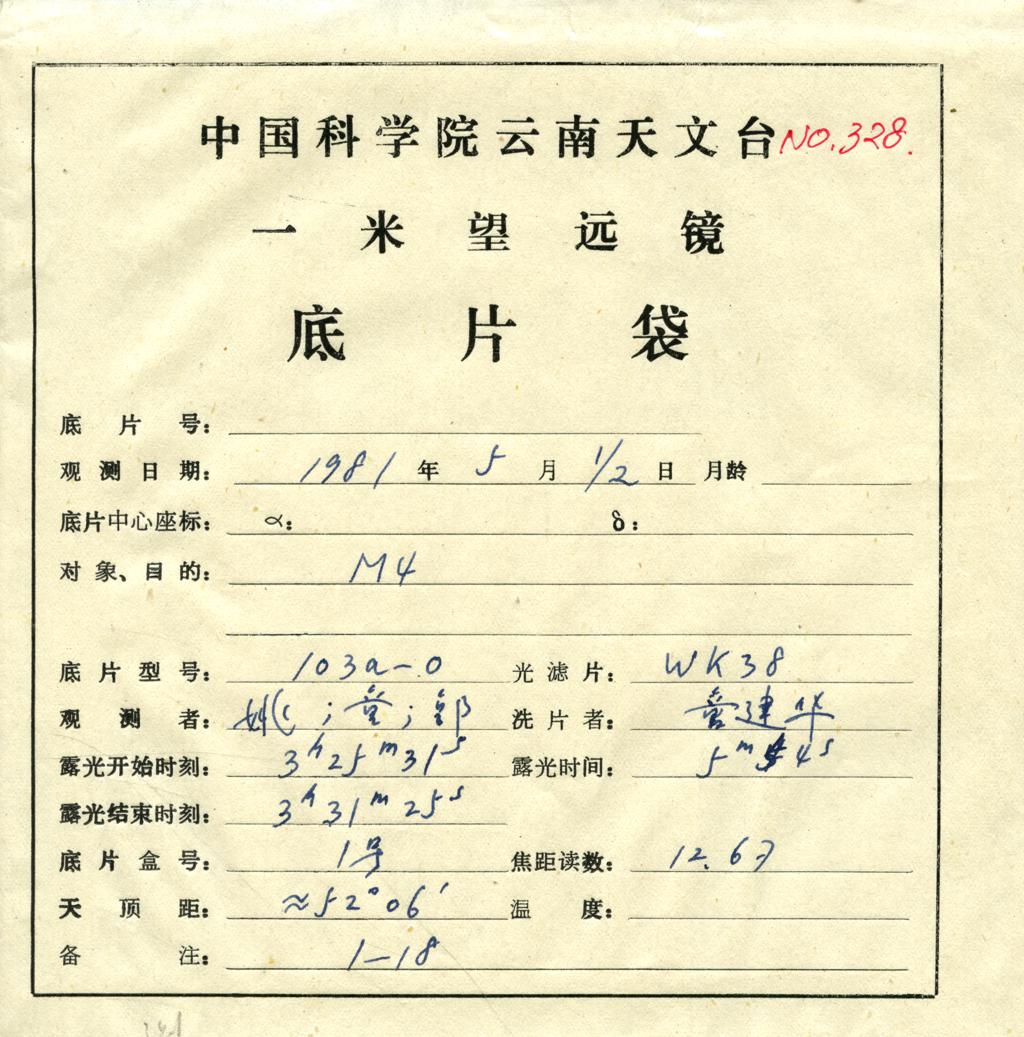 中国科学院云南天文台 NO.328.
一米望远镜
底片袋
底片号:
观测日期: 1981年 5月 1/2日 月龄
底片中心座标: α: δ:
对象、目的: M4
底片型号: 103a-O 光滤片: WK38
观测者: 洗片者: 建华
露光开始时刻: 3h25m31s 露光时间: 5m 4s
露光结束时刻: 3h31m25s
底片盒号: 1号 焦距读数: 12.67
天顶距: ≈52°06′ 温度:
备注: 1-18